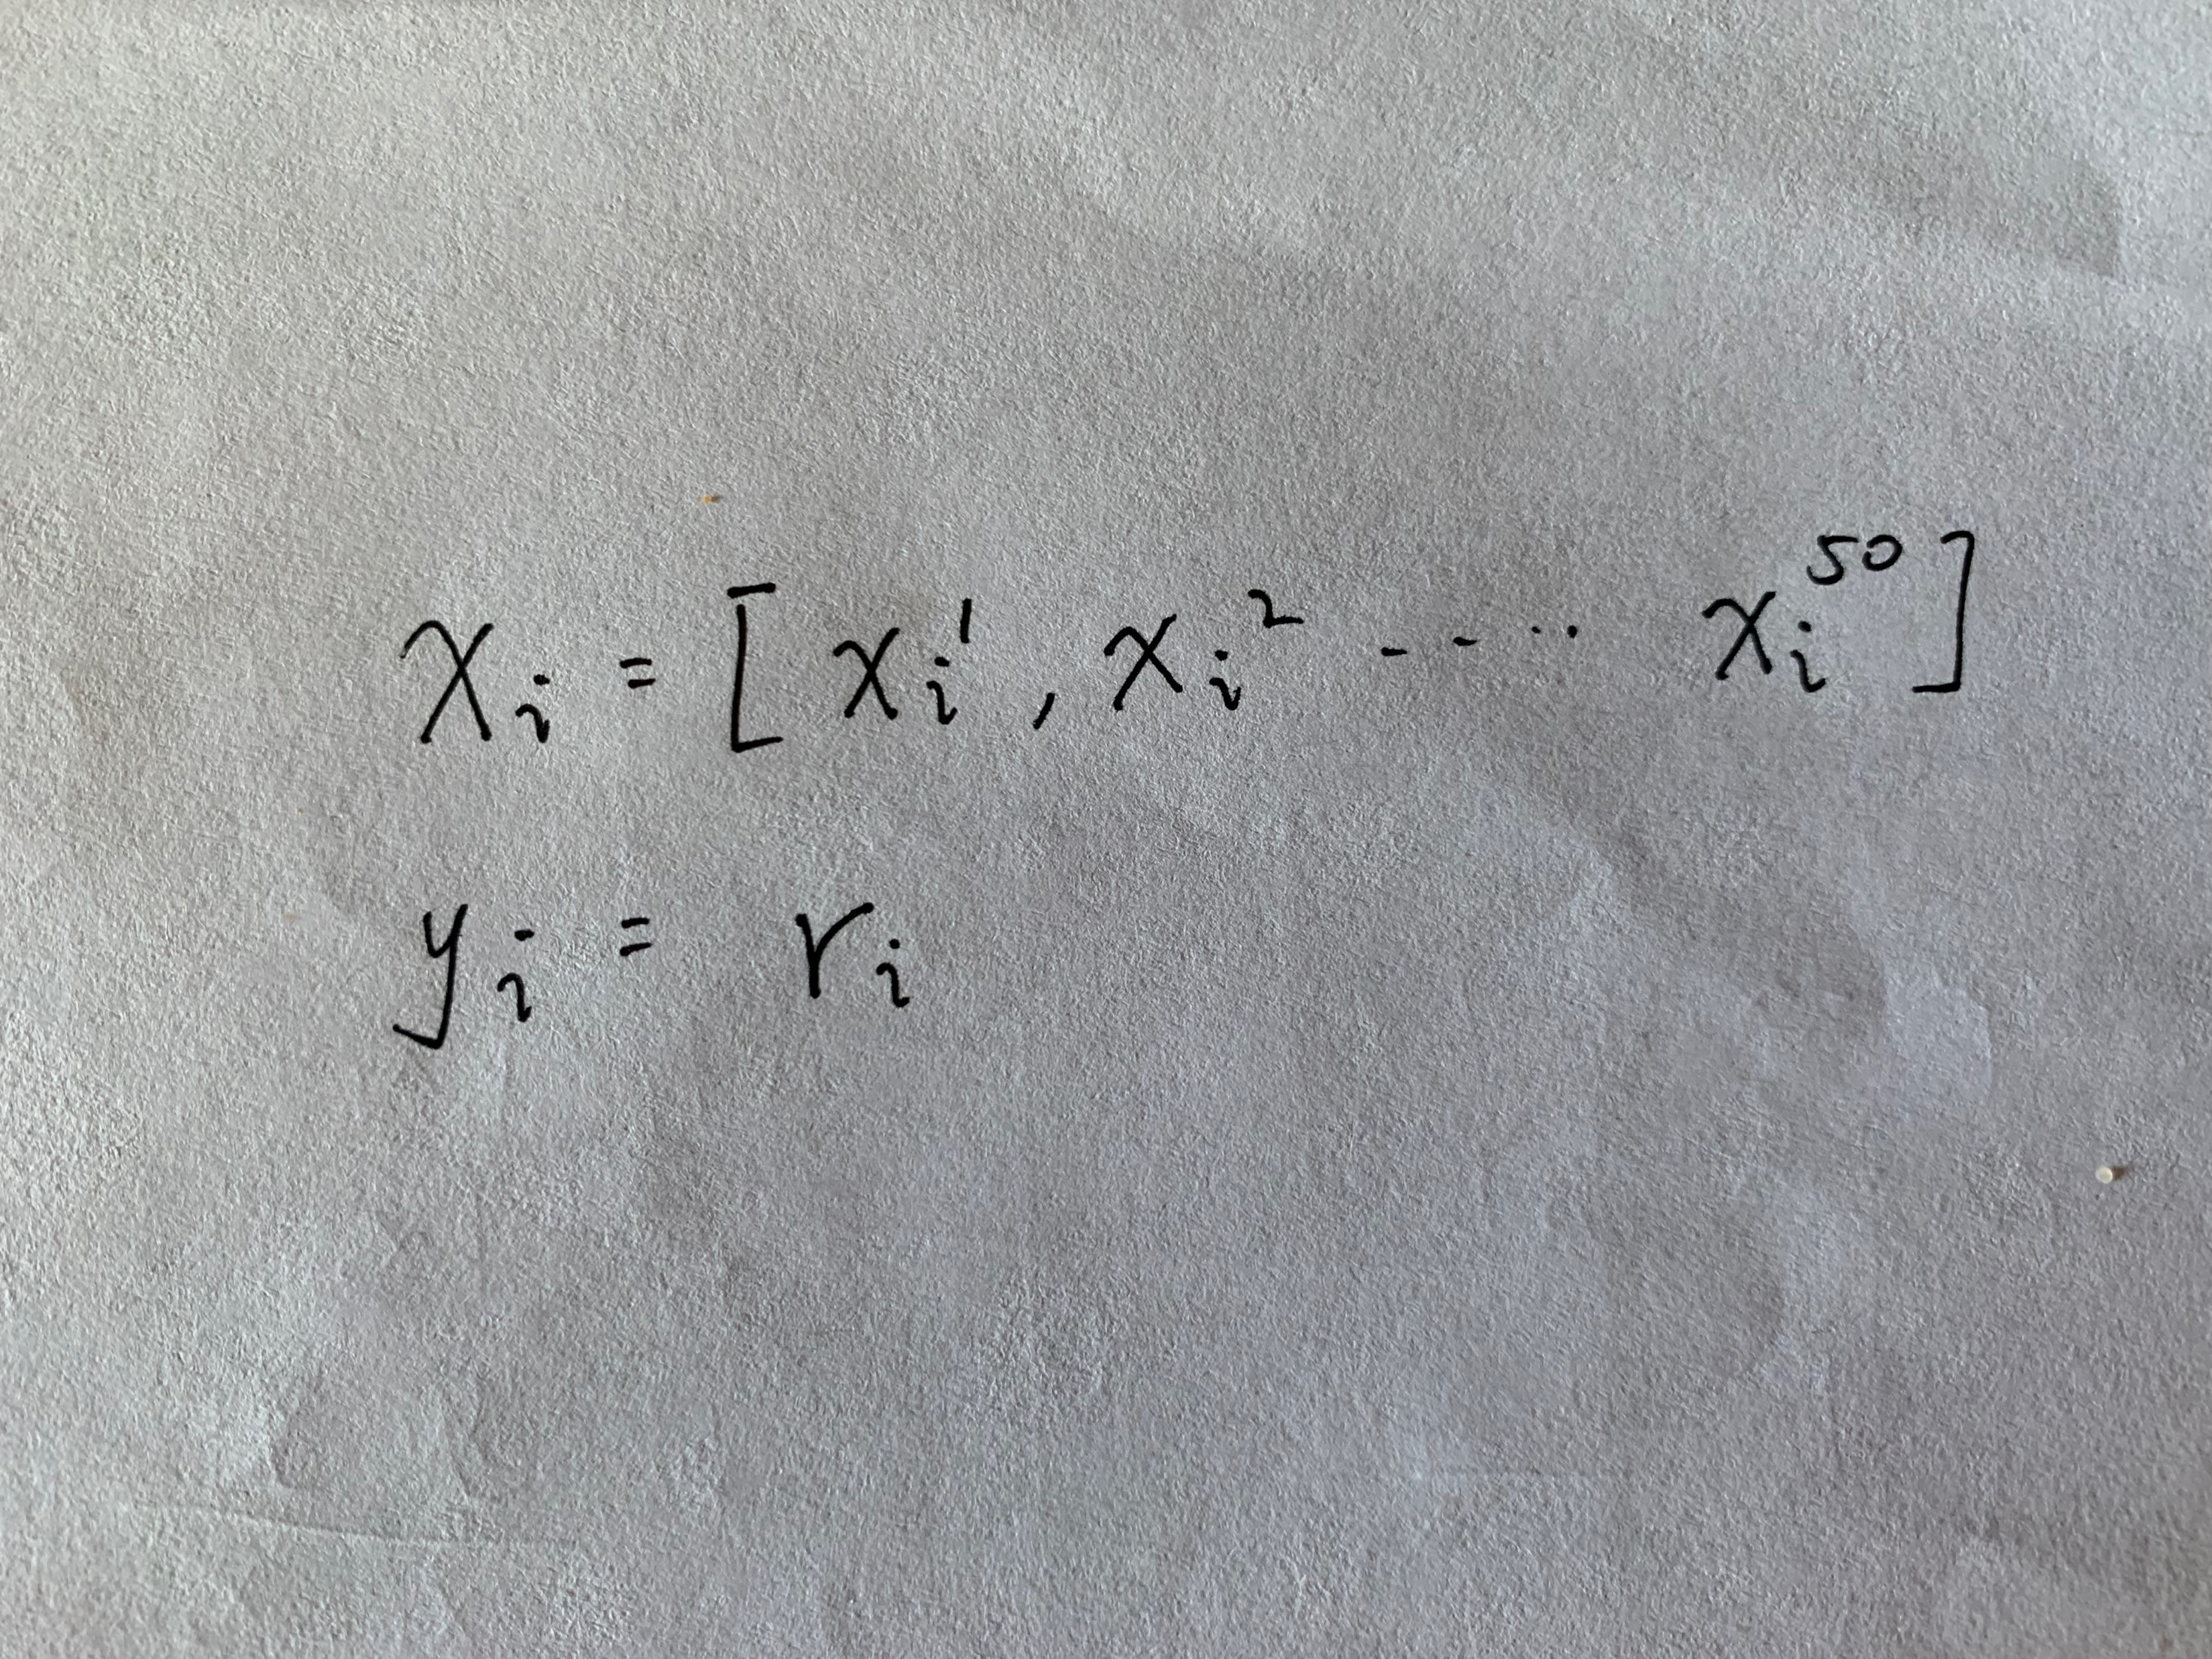 xᵢ = [ xᵢ¹, xᵢ² ---·· xᵢ⁵⁰ ]
yᵢ = rᵢ